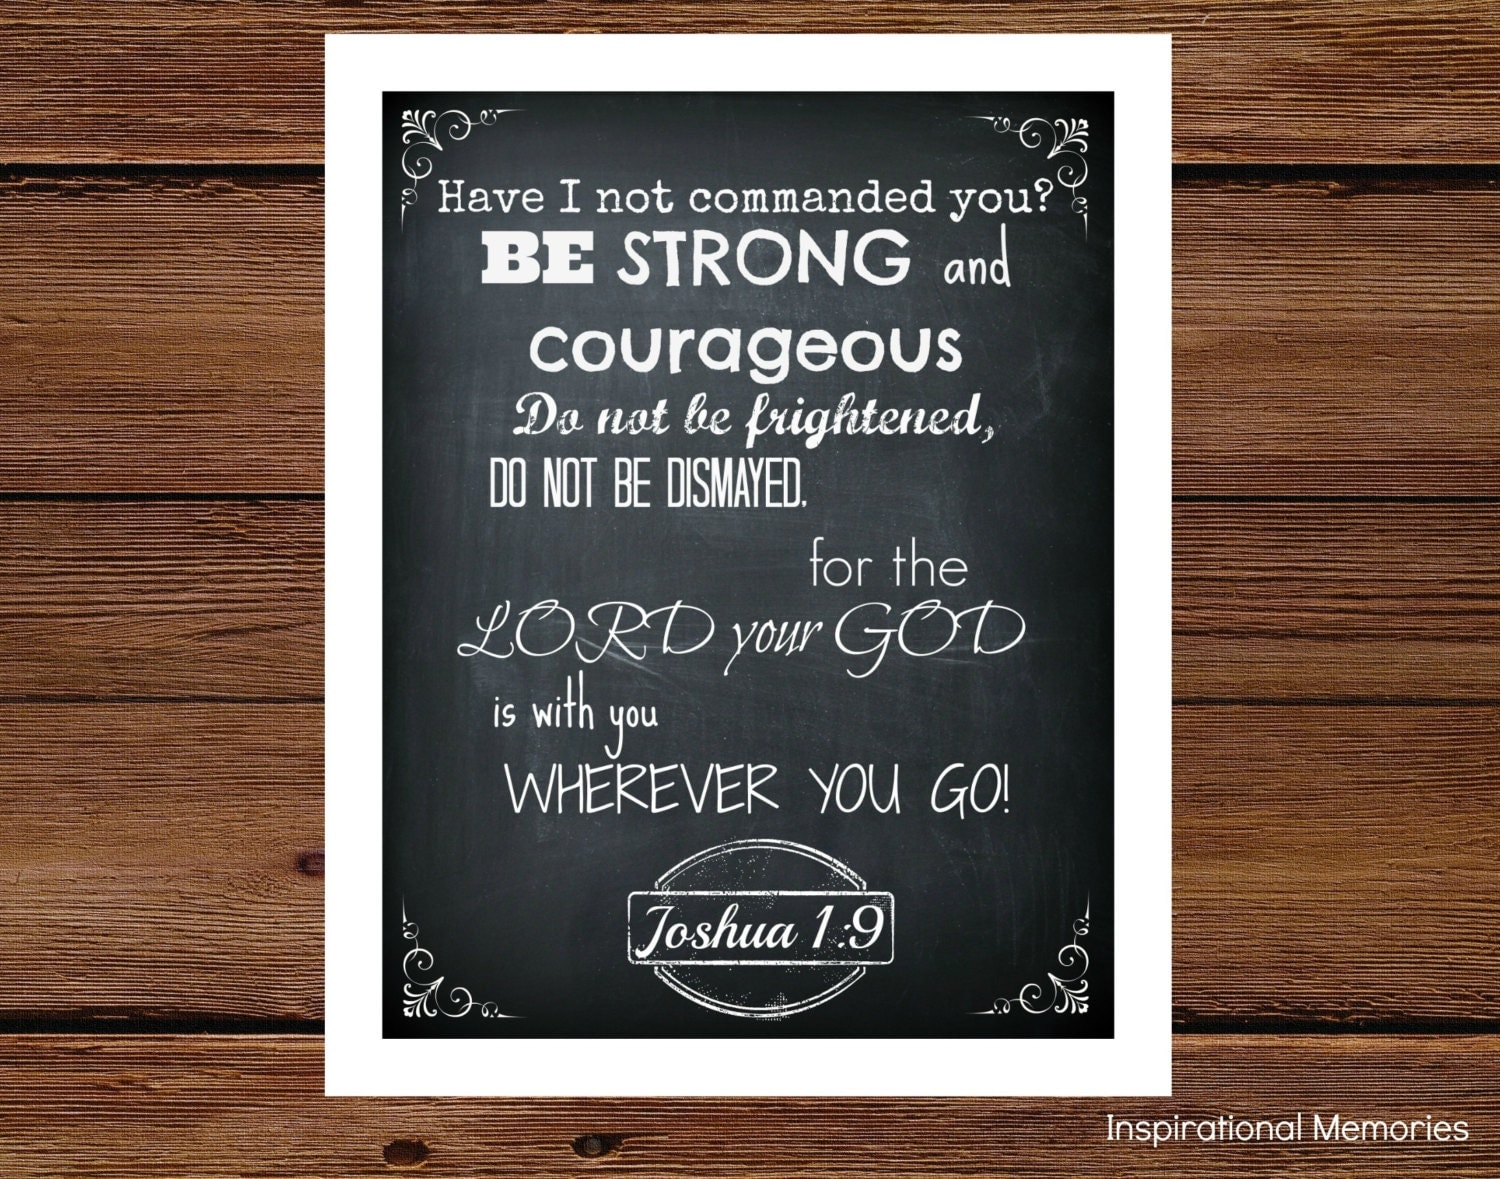 Have I not commanded you?
BE STRONG and
courageous
Do not be frightened,
DO NOT BE DISMAYED,
for the
LORD your GOD
is with you
WHEREVER YOU GO!
Joshua 1:9
Inspirational Memories